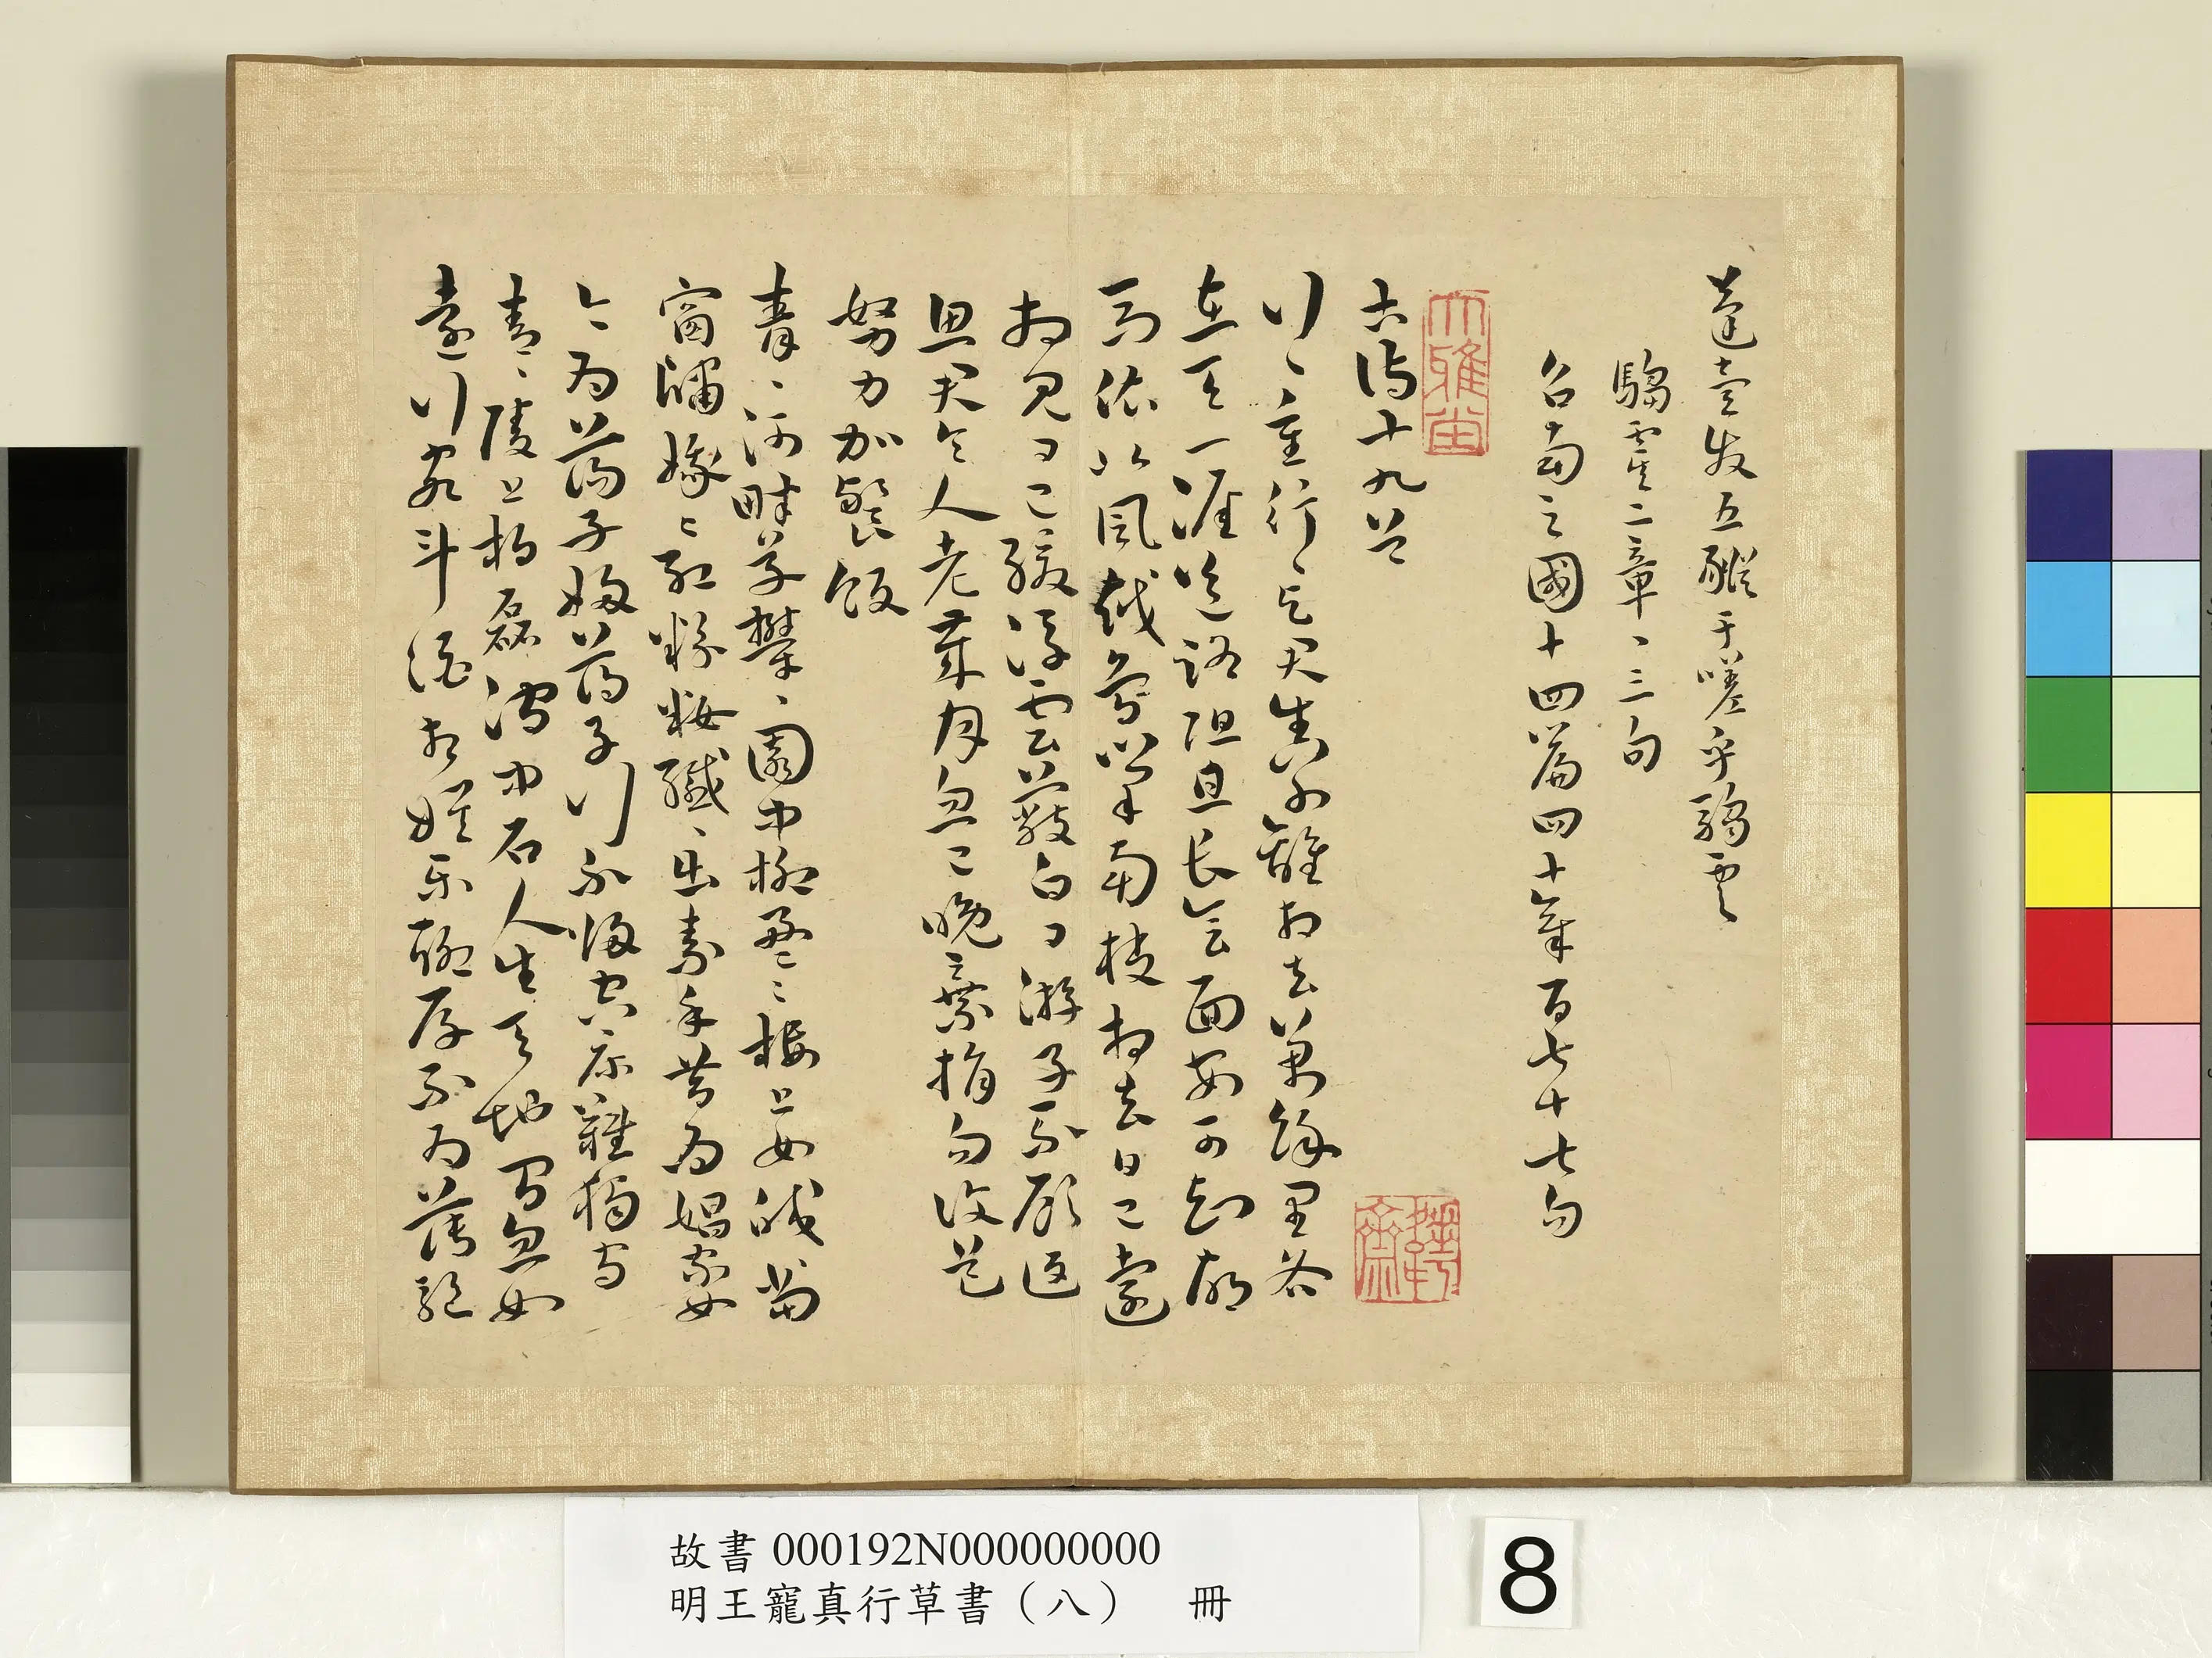 蓬壹发五豵于嗟乎騶虞
騶虞二章、三句
召南之國十四篇四十章百七十七句
大雅堂
古詩十九首
行、重行、与君生別離相去萬餘里各
在天一涯道路阻且長會面安可知胡
馬依北風越鳥巢南枝相去日已遠
相見日已緩浮雲蔽白日游子不顧返
思君令人老歲月忽已晚棄捐勿復道
努力加餐飯
青、河畔草鬱、園中柳盈、樓上女皎、當
窗牖娥、紅粉妝纖、出素手昔為娼家女
今為蕩子婦蕩子行不歸空床難獨守
青、陵上柏磊、澗中石人生天地間忽如
遠行客斗酒相娛樂聊厚不為薄驅
故書000192N000000000
明王寵真行草書（八） 冊
8